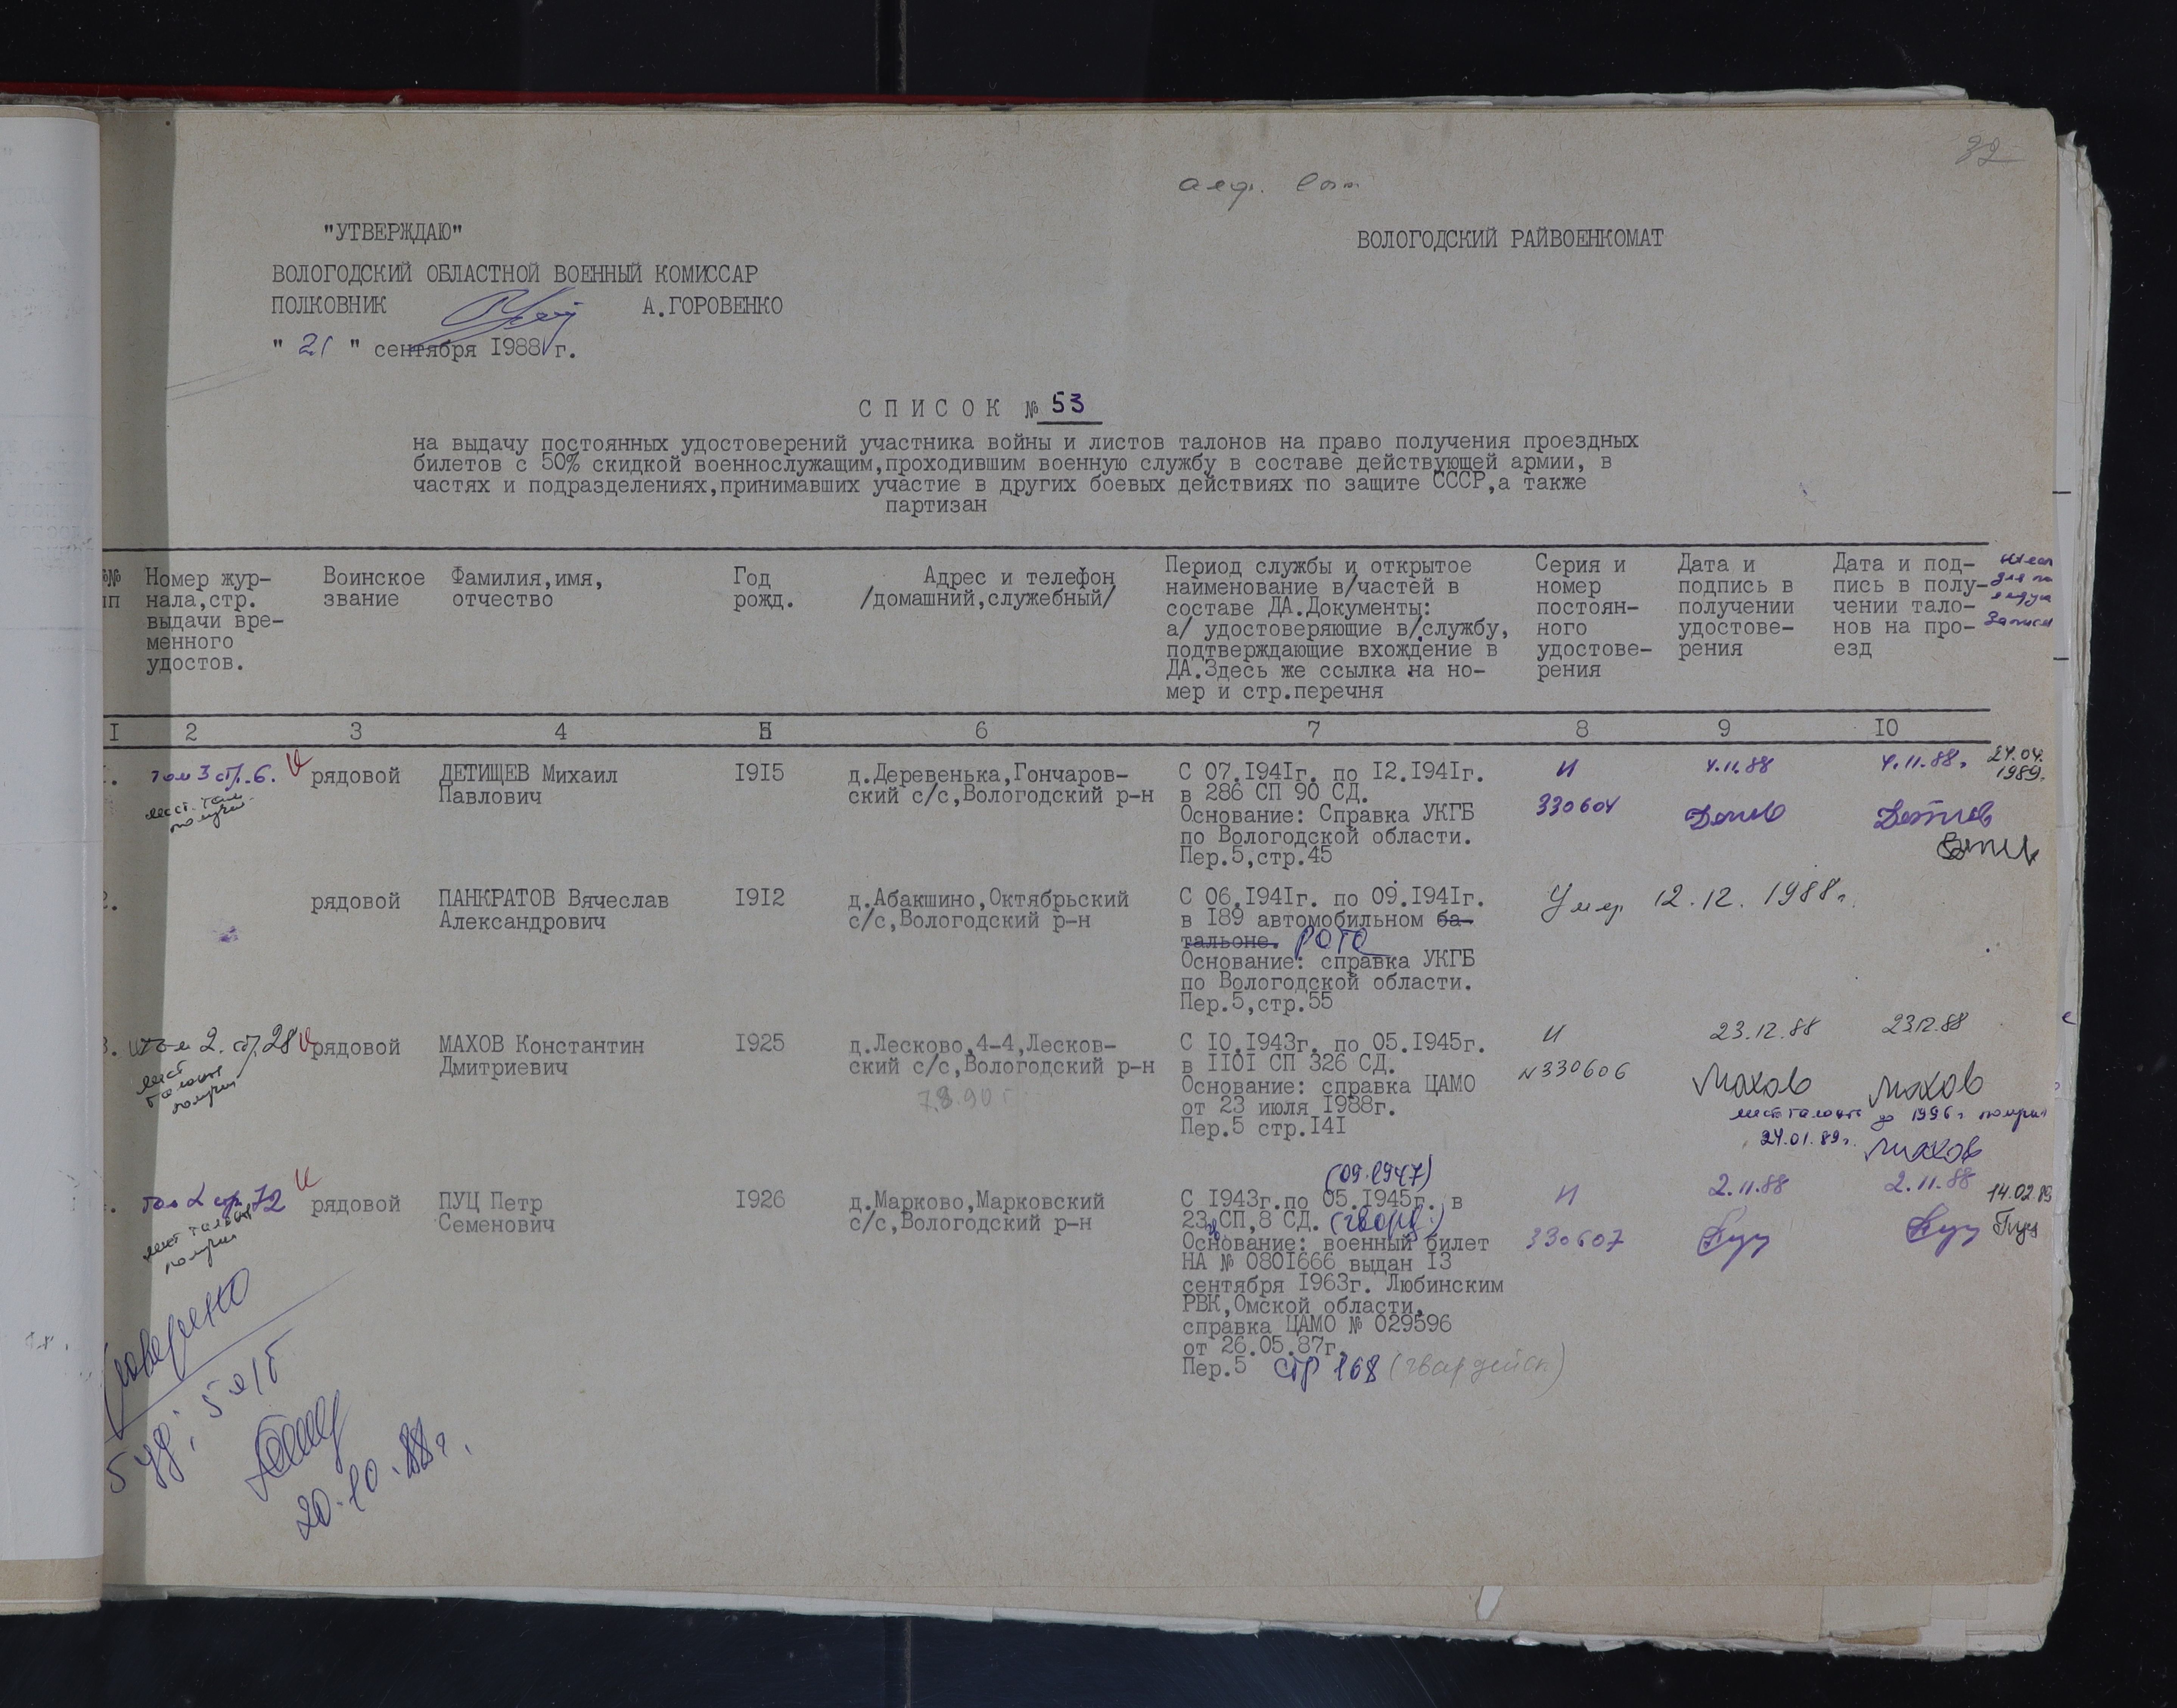 32
"УТВЕРЖДАЮ"
ВОЛОГОДСКИЙ РАЙВОЕНКОМАТ
ВОЛОГОДСКИЙ ОБЛАСТНОЙ ВОЕННЫЙ КОМИССАР
ПОЛКОВНИК А.ГОРОВЕНКО
" 21 " сентября I988 г.
С П И С О К № 53
на выдачу постоянных удостоверений участника войны и листов талонов на право получения проездных
билетов с 50% скидкой военнослужащим,проходившим военную службу в составе действующей армии, в
частях и подразделениях,принимавших участие в других боевых действиях по защите СССР,а также
партизан
№№
пп
Номер жур-
нала,стр.
выдачи вре-
менного
удостов.
Воинское
звание
Фамилия,имя,
отчество
Год
рожд.
Адрес и телефон
/домашний,служебный/
Период службы и открытое
наименование в/частей в
составе ДА.Документы:
а/ удостоверяющие в/службу,
подтверждающие вхождение в
ДА.Здесь же ссылка на но-
мер и стр.перечня
Серия и
номер
постоян-
ного
удостове-
рения
Дата и
подпись в
получении
удостове-
рения
Дата и под-
пись в полу-
чении тало-
нов на про-
езд
I 2 3 4 5 6 7 8 9 IO
том 3 ст. 6.
лист. тал.
получил
рядовой
ДЕТИЩЕВ Михаил
Павлович
I9I5
д.Деревенька,Гончаров-
ский с/с,Вологодский р-н
С 07.I94Iг. по I2.I94Iг.
в 286 СП 90 СД.
Основание: Справка УКГБ
по Вологодской области.
Пер.5,стр.45
И
330604
4.11.88
4.11.88г.
24.04.
1989.
2.
рядовой
ПАНКРАТОВ Вячеслав
Александрович
I9I2
д.Абакшино,Октябрьский
с/с,Вологодский р-н
С 06.I94Iг. по 09.I94Iг.
в I89 автомобильном ба-
тальоне. роте
Основание: справка УКГБ
по Вологодской области.
Пер.5,стр.55
Умер 12.12.1988г.
3. том 2. ст. 28
лист
талонов
получил
рядовой
МАХОВ Константин
Дмитриевич
I925
д.Лесково,4-4,Лесков-
ский с/с,Вологодский р-н
7.8.90 г
С IO.I943г. по 05.I945г.
в IIOI СП 326 СД.
Основание: справка ЦАМО
от 23 июля I988г.
Пер.5 стр.I4I
И
N330606
23.12.88
Махов
23.12.88
Махов
лист талонов до 1996 г получил
24.01.89г. Махов
том 2 стр. 72
лист талонов
получил
рядовой
ПУЦ Петр
Семенович
I926
д.Марково,Марковский
с/с,Вологодский р-н
(09.1947)
С I943г.по 05.I945г. в
23 СП,8 СД. (гвард.)
Основание: военный билет
НА № 080I666 выдан I3
сентября I963г. Любинским
РВК,Омской области,
справка ЦАМО № 029596
от 26.05.87г.
Пер.5 стр 168 (гвардейск)
И
330607
2.11.88
Пуц
2.11.88
Пуц
14.02.89
Пуц
Проверено
20.10.88г.